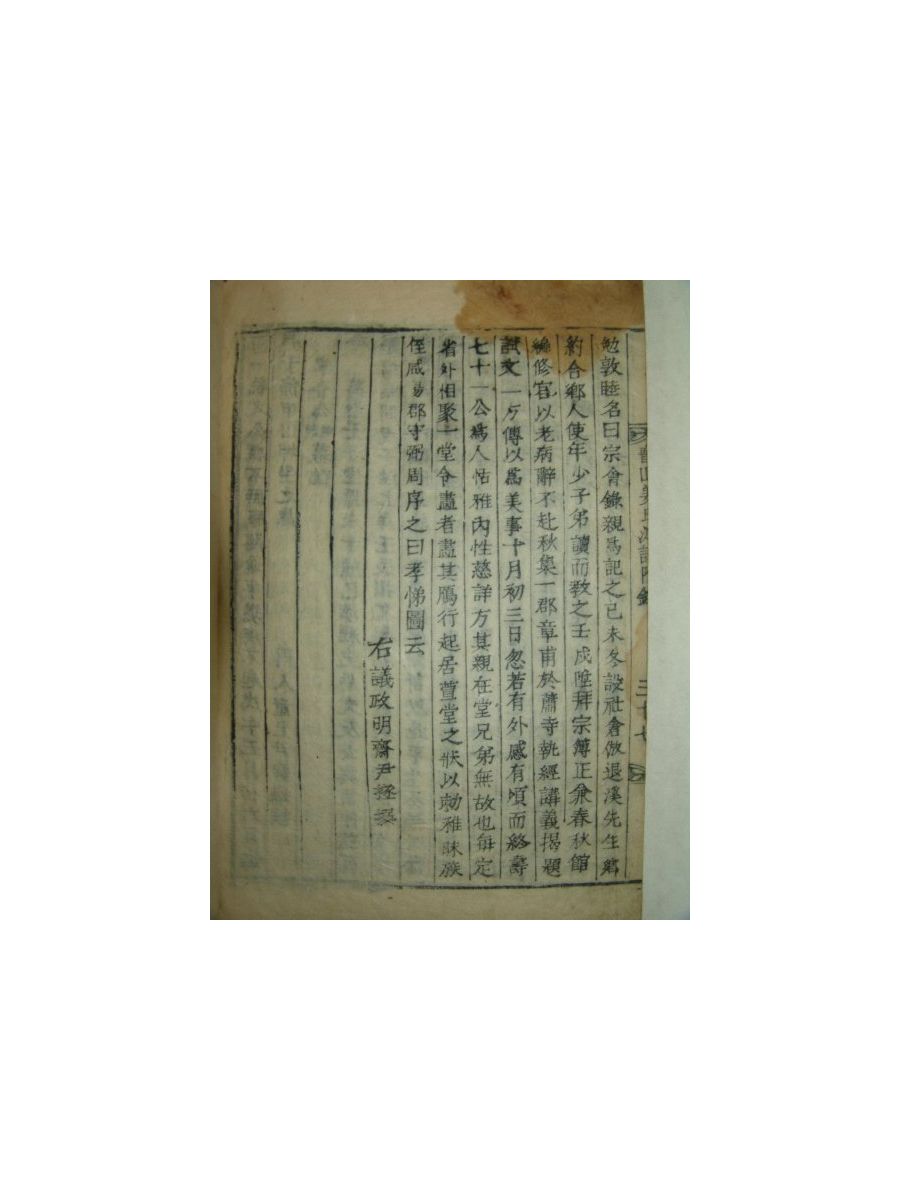 勉敦睦名曰宗會錄親爲記之己未冬設社倉倣退溪先生鄕
約合鄕人使年少子弟讀而敎之壬戌陞拜宗簿正兼春秋館
編修官以老病辭不赴秋集一郡章甫於蕭寺執經講義揭題
試文一方傳以爲美事十月初三日忽若有外感有頃而終壽
七十一公爲人恬雅內性慈詳方其親在堂兄弟無故也每定
省外相聚一堂令畫者畫其鴈行起居萱堂之狀以勅雅昧族
侄咸昜郡守弼周序之曰孝悌圖云
右議政明齋尹拯撰